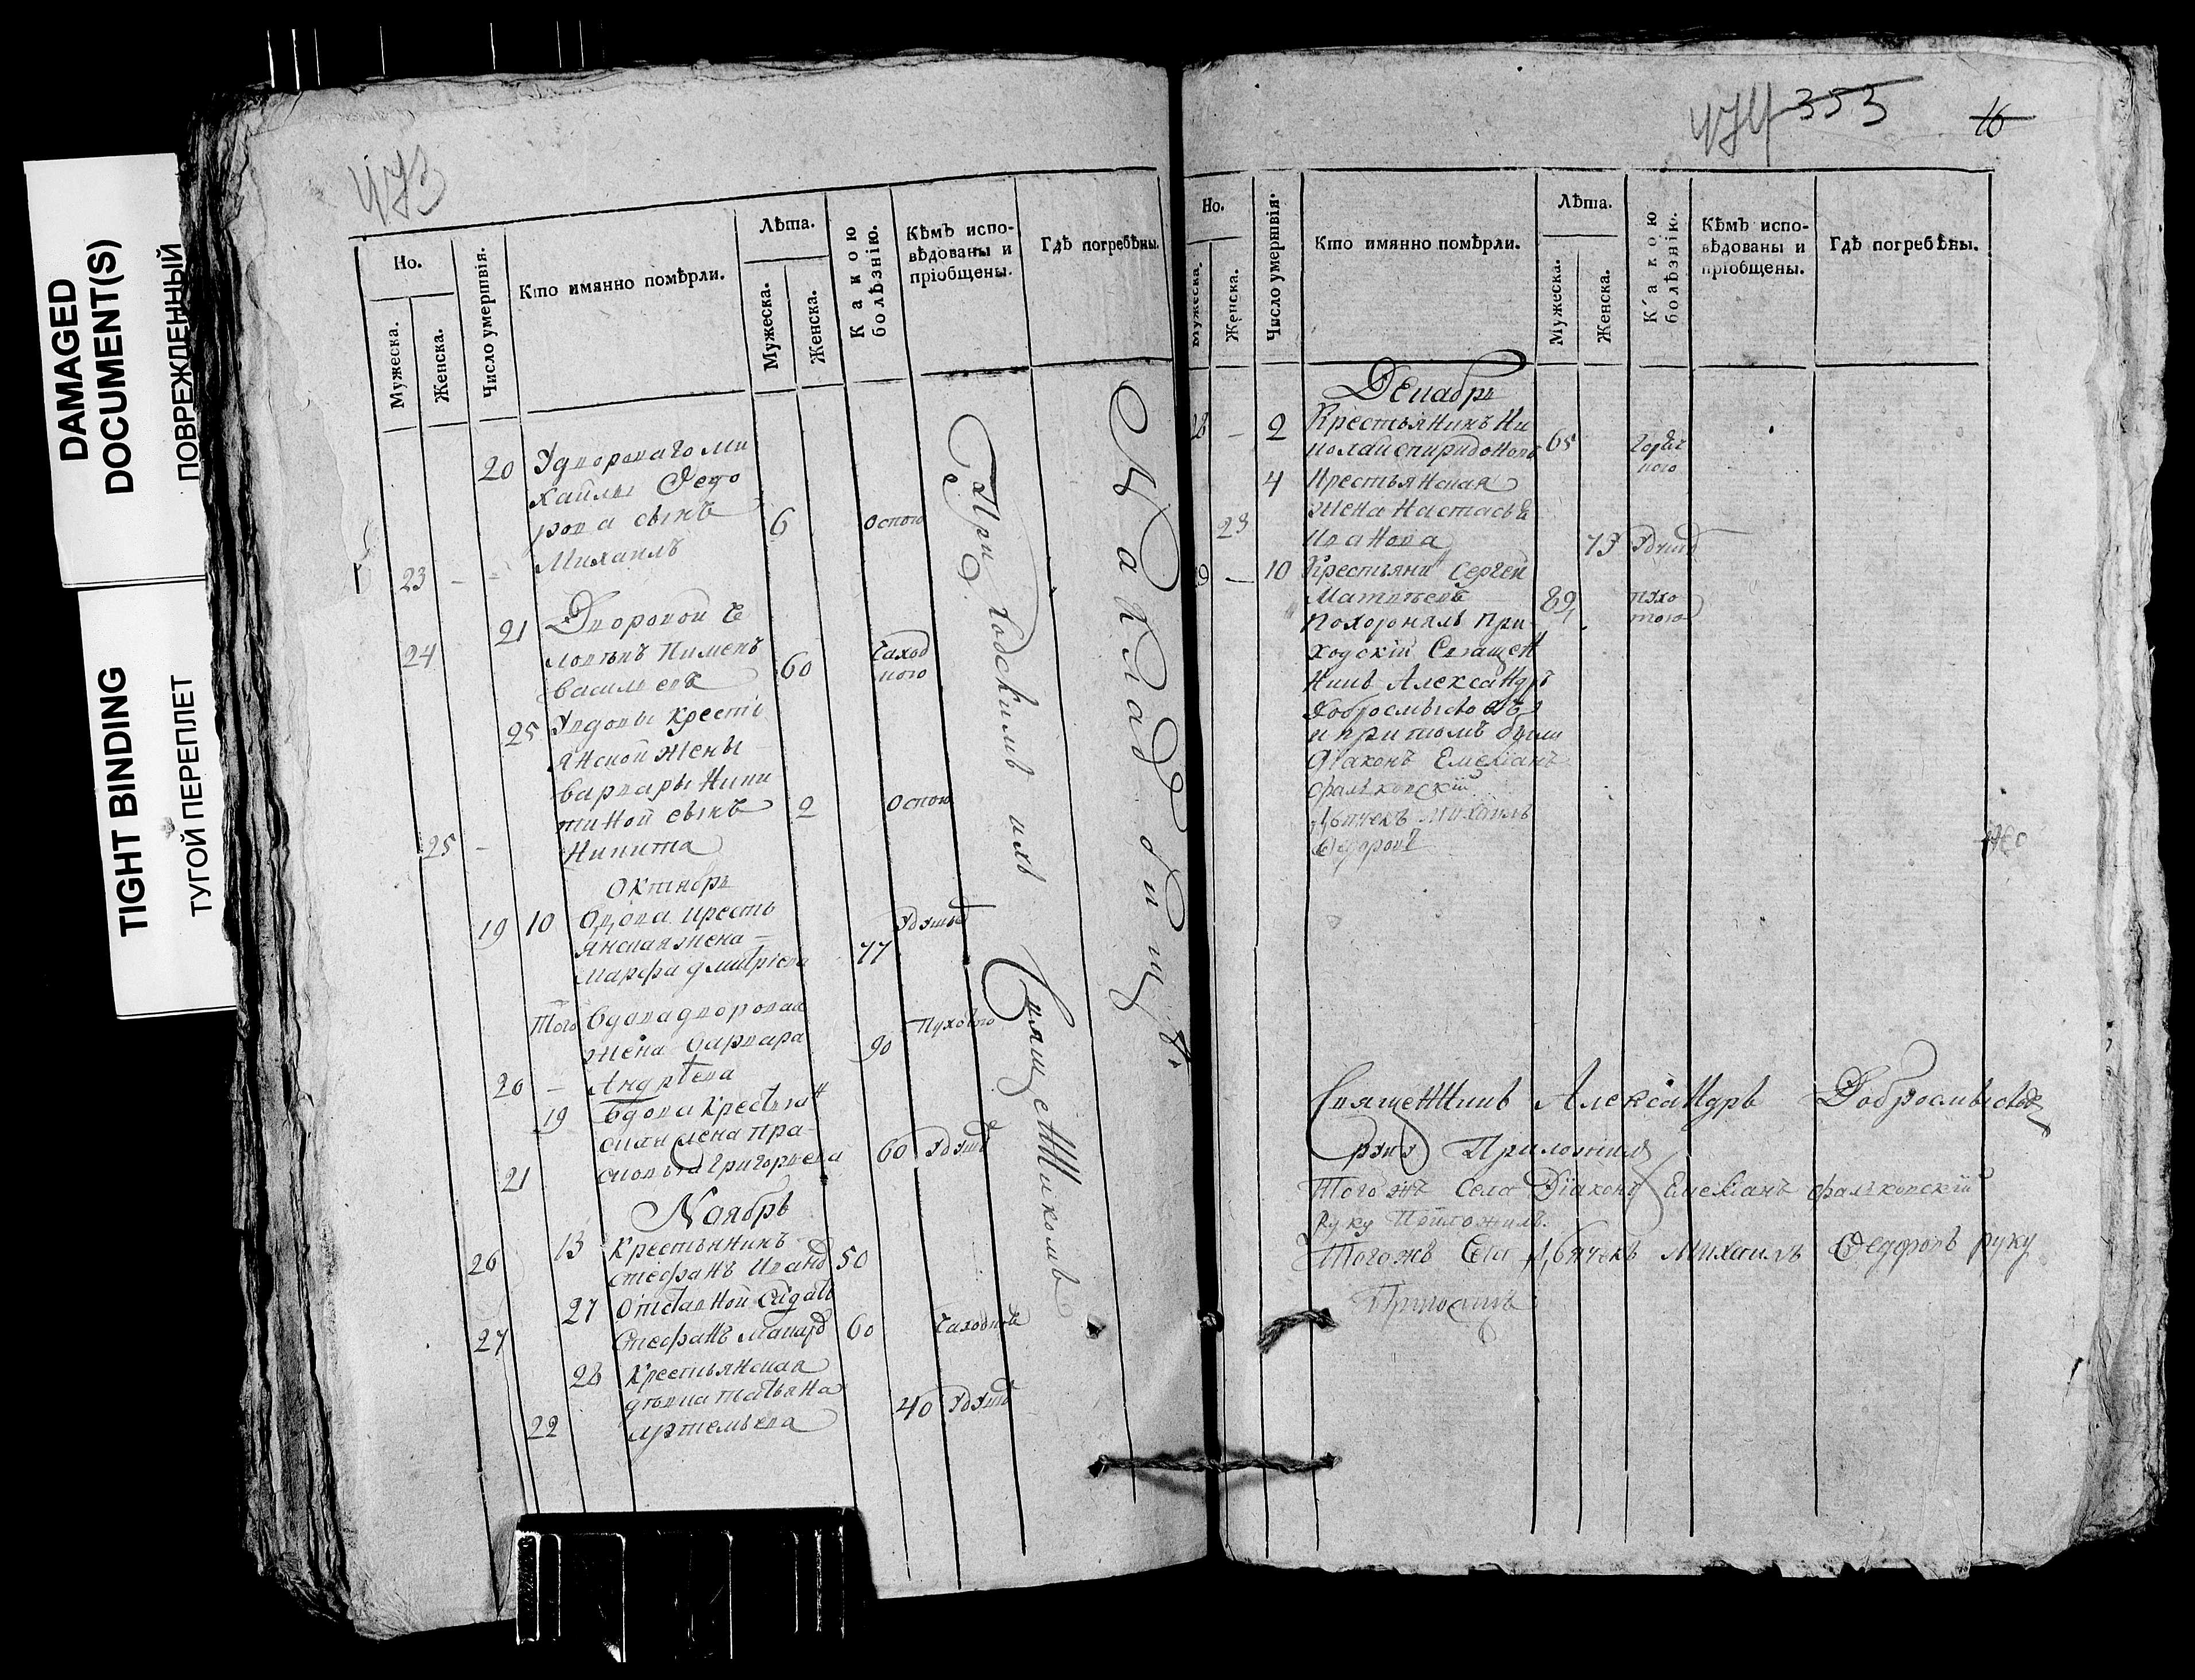 DAMAGED
DOCUMENT(S)
ПОВРЕЖДЕННЫЙ
TIGHT BINDING
ТУГОЙ ПЕРЕПЛЕТ
473
Но.
Мужеска.
Женска.
Число умертвія.
Кто имянно помѣрли.
Лѣта.
Мужеска.
Женска.
Какою болѣзнію.
Кѣмъ испо-
вѣдованы и
пріобщены.
Гдѣ погребѣны.
20 Удвороваго Ми
хайлы Федо
рова сынъ 6 Оспою
Михаилъ
23 - -
21 Дворовой че
24 ловѣкъ Пименъ Чаход
Васильевъ 60 кою
25 Удовы крестъ
янской жены
варвары Ники
тиной сынъ 2 Оспою
25 - Никита
Октябрь
19 10 Вдова кресть
янская жена
Марфа дмитріева 77
Того Вдова дворовая
жена варвара 90 Пухотою
20 - Андрѣева
19 Вдова Крестьян
ская жена Пра-
21 сковья Григорьева 60
Ноябрь
13 Крестьянинъ
26 Стефанъ Иванов 50
27 Отставной Салдатъ
27 Стефанъ Макаров 60 Чахоткою
28 Крестьянская
дѣвка татьяна
22 артемьева 40
Приходскимъ ихъ Священникомъ
На Кладбищѣ.
474 353 16
Но.
Мужеска.
Женска.
Число умертвія.
Кто имянно помѣрли.
Лѣта.
Мужеска.
Женска.
Какою болѣзнію.
Кѣмъ испо-
вѣдованы и
пріобщены.
Гдѣ погребѣны.
Декабрь
28 - 2 Крестьянинъ Ни
колай спиридонов 65 Горяч
кою
4 Крестьянская
жена Настасья
23 Иванова 73
29 - 10 Крестьянин Сергей
Матвѣевъ 89 пухо
тою
Похоронялъ При-
ходскій Священ
никъ Александръ
Добросмысловъ
и притомъ были
Діаконъ Емеліанъ
фальковскій
Дьячекъ Михаилъ
Федоровъ
Священникъ Александръ Добросмыслов
руку Приложилъ
Того жъ Села Діаконъ Емеліанъ фальковскій
руку Приложилъ.
Того жъ Села Дьячекъ Михаилъ Федоровъ руку
Приложилъ